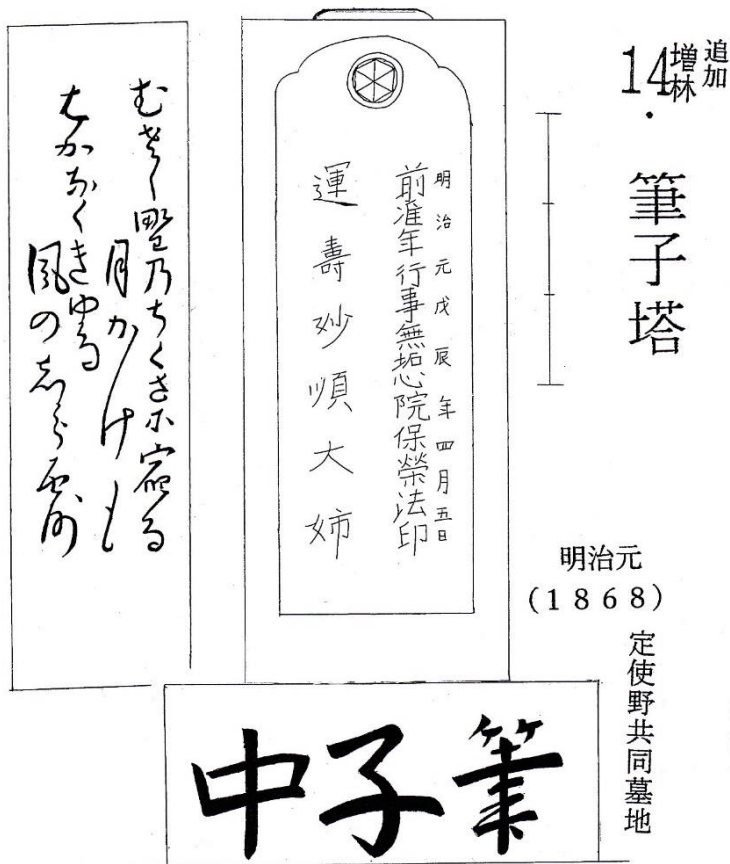 追加
増林
14・筆子塔
明治元
(1868)
定使野共同墓地
明治元戊辰年四月五日
前准年行事無垢心院保榮法印
運壽妙順大姉
むさし埜乃ちくさ尓宿る
月かけも
はかなくきゆる
風の志ら
筆子中